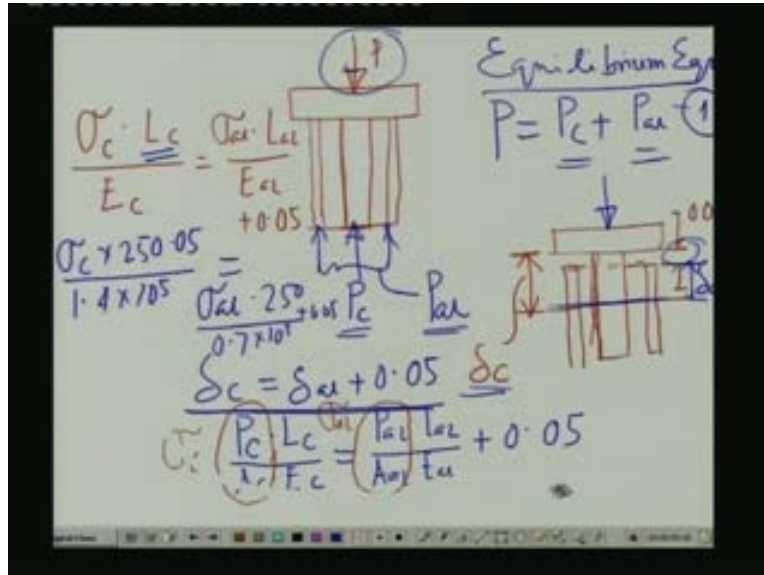 P
Equilibrium Eqn
P = Pc + Pal - 1
σc · Lc / Ec = σal · Lal / Eal + 0.05
σc × 250.05 / 1.4 × 10⁵ = σal · 250 / 0.7 × 10⁵ + 0.05
Pc
Pal
δc = δal + 0.05
δc
σc
σal
Pc Lc / Ac Ec = Pal Lal / Aal Eal + 0.05